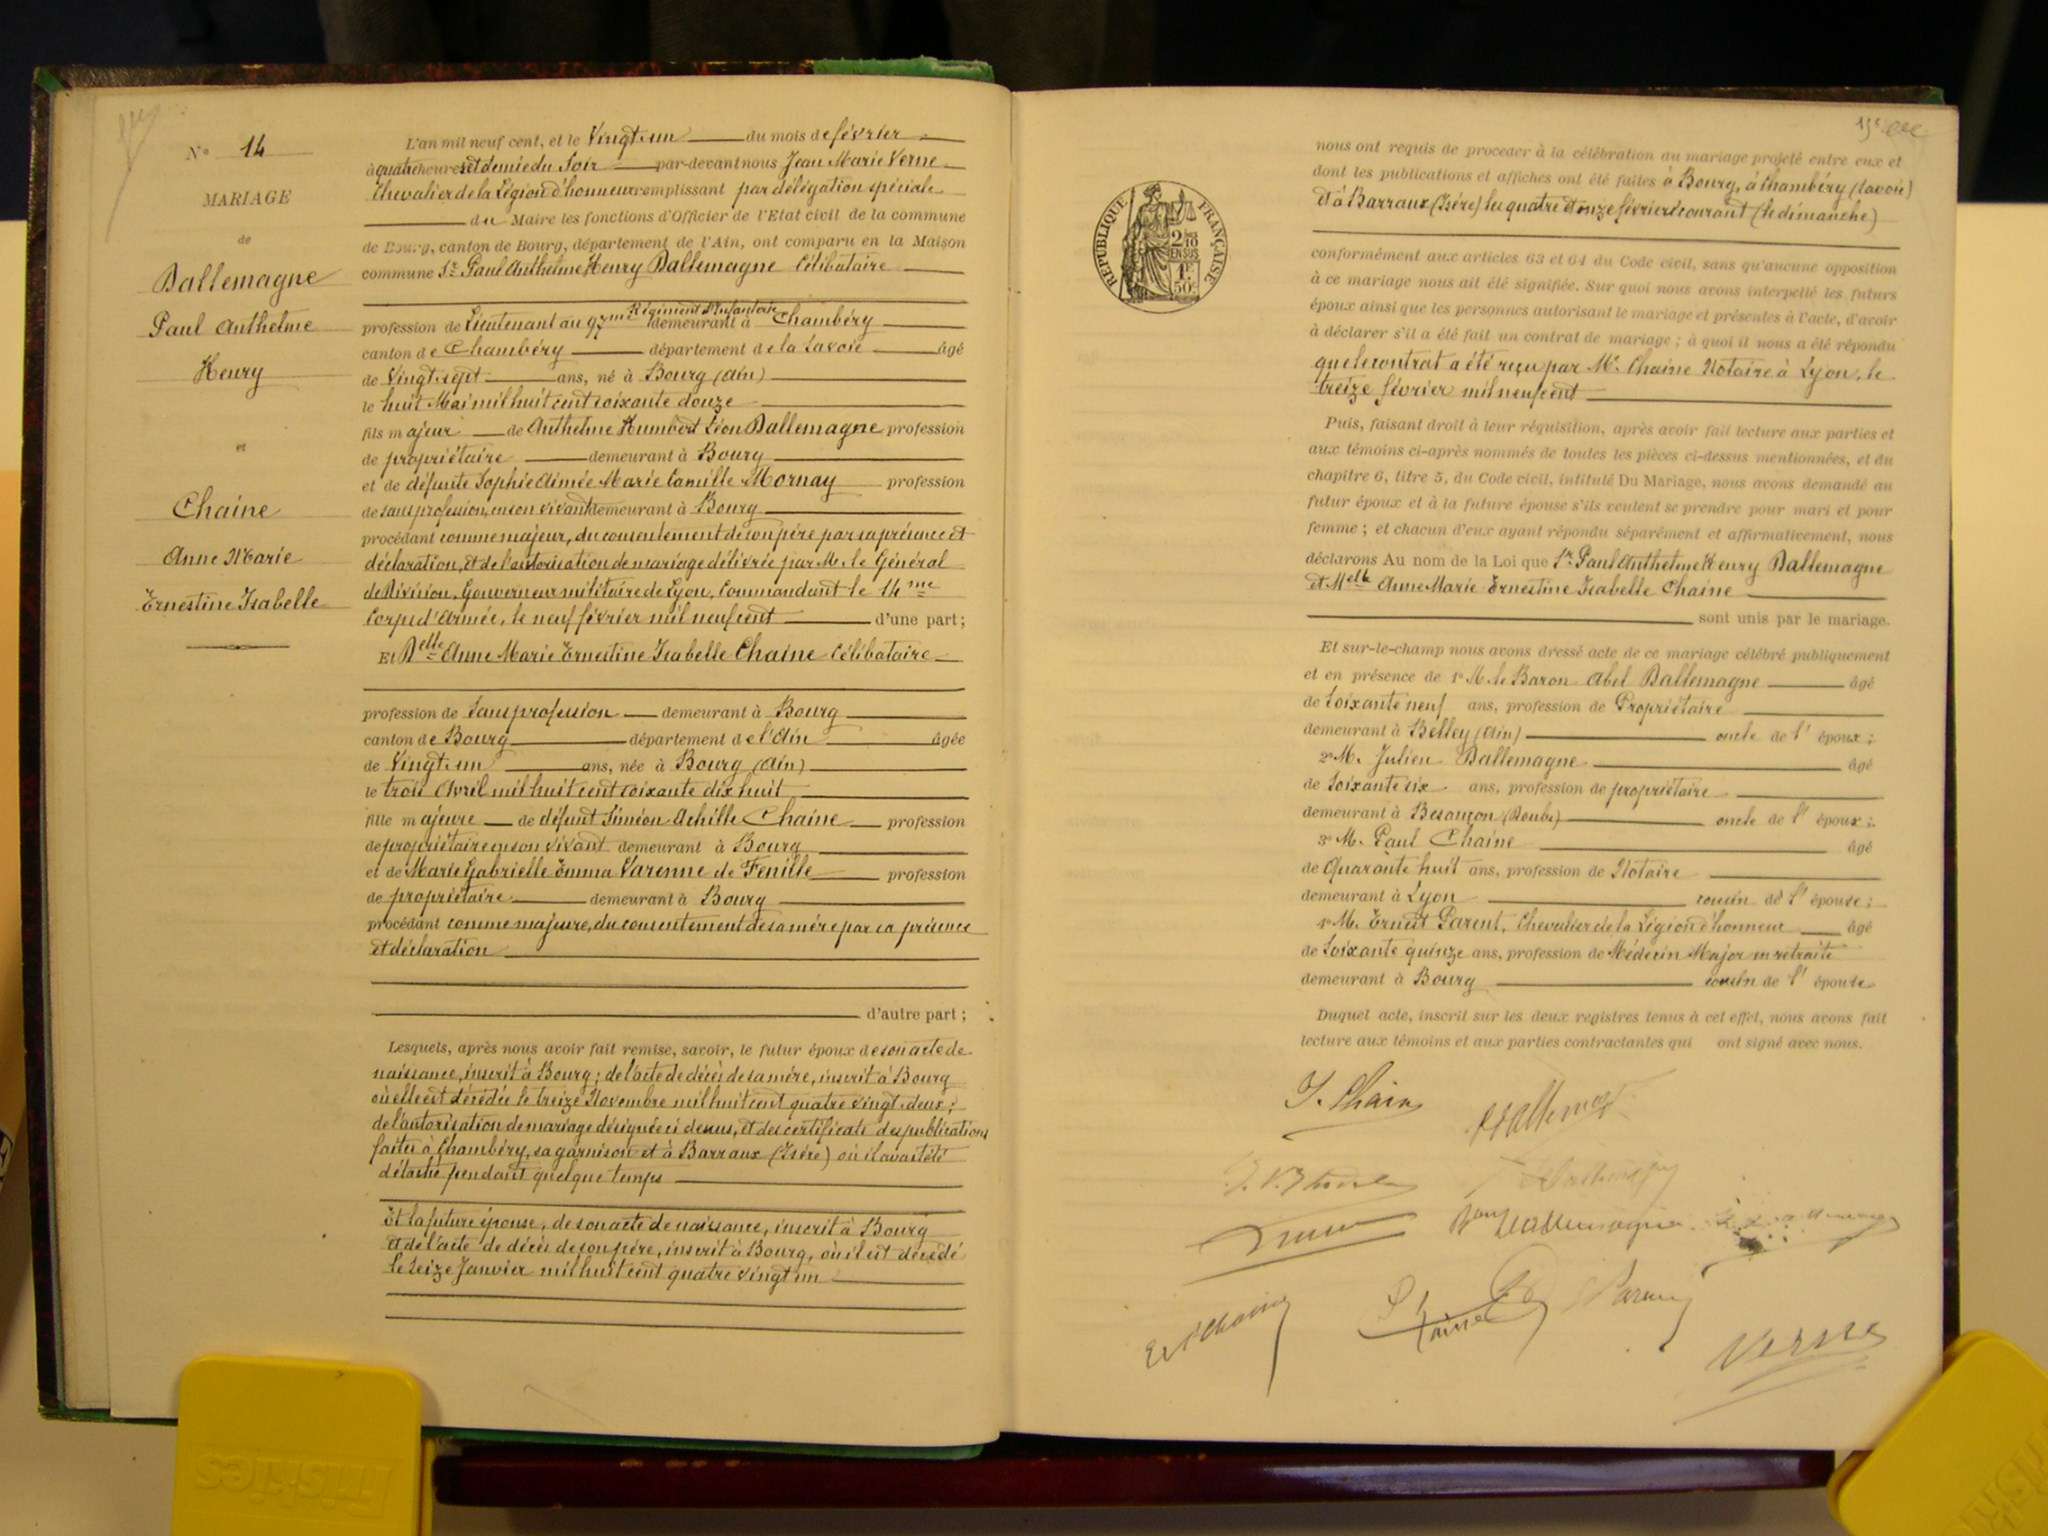 N° 14
MARIAGE
de
Dallemagne
Paul Anthelme
Henry
et
Chaine
Anne Marie
Ernestine Isabelle
L'an mil neuf cent, et le Vingt-un du mois de février
à quatre heures et demie du Soir par-devant nous Jean Marie Verne
Chevalier de la Légion d'honneur remplissant par délégation spéciale
du Maire les fonctions d'Officier de l'Etat civil de la commune
de Bourg, canton de Bourg, département de l'Ain, ont comparu en la Maison
commune Sr Paul Anthelme Henry Dallemagne Célibataire
profession de Lieutenant au 97me Régiment d'Infanterie demeurant à Chambéry
canton de Chambéry département de la Savoie âgé
de Vingt-sept ans, né à Bourg (Ain)
le huit Mai mil huit cent soixante douze
fils majeur de Anthelme Humbert Léon Dallemagne profession
de propriétaire demeurant à Bourg
et de défunte Sophie Aimée Marie Camille Mornay profession
de sans profession, en son vivant demeurant à Bourg
procédant comme majeur, du consentement de son père par sa présence et
déclaration, et de l'autorisation de mariage délivrée par M. le Général
de Division, Gouverneur militaire de Lyon, Commandant le 14me
Corps d'Armée, le neuf février mil neuf cent d'une part ;
Et Delle Anne Marie Ernestine Isabelle Chaine Célibataire
profession de Sans profession demeurant à Bourg
canton de Bourg département de l'Ain âgée
de Vingt-un ans, née à Bourg (Ain)
le trois Avril mil huit cent soixante dix huit
fille majeure de défunt Siméon Achille Chaine profession
de propriétaire en son vivant demeurant à Bourg
et de Marie Gabrielle Emma Varenne de Fenille profession
de propriétaire demeurant à Bourg
procédant comme majeure, du consentement de sa mère par sa présence
et déclaration
d'autre part ;
Lesquels, après nous avoir fait remise, savoir, le futur époux de son acte de
naissance, inscrit à Bourg ; de l'acte de décès de sa mère, inscrit à Bourg
où elle est décédée le treize Novembre mil huit cent quatre vingt-deux ;
de l'autorisation de mariage désignée ci dessus, et des certificats des publications
faites à Chambéry, sa garnison et à Barraux (Isère) où il avait été
détaché pendant quelque temps
Et la future épouse, de son acte de naissance, inscrit à Bourg
et de l'acte de décès de son père, inscrit à Bourg, où il est décédé
le seize Janvier mil huit cent quatre vingt un
REPUBLIQUE FRANÇAISE
2/10 EN SUS
1F 50c
nous ont requis de procéder à la célébration du mariage projeté entre eux et
dont les publications et affiches ont été faites à Bourg, à Chambéry (Savoie)
et à Barraux (Isère) les quatre et onze février courant (le dimanche)
conformément aux articles 63 et 64 du Code civil, sans qu'aucune opposition
à ce mariage nous ait été signifiée. Sur quoi nous avons interpellé les futurs
époux ainsi que les personnes autorisant le mariage et présentes à l'acte, d'avoir
à déclarer s'il a été fait un contrat de mariage ; à quoi il nous a été répondu
que le contrat a été reçu par Me Chaine Notaire à Lyon, le
treize février mil neuf cent
Puis, faisant droit à leur réquisition, après avoir fait lecture aux parties et
aux témoins ci-après nommés de toutes les pièces ci-dessus mentionnées, et du
chapitre 6, titre 5, du Code civil, intitulé Du Mariage, nous avons demandé au
futur époux et à la future épouse s'ils veulent se prendre pour mari et pour
femme ; et chacun d'eux ayant répondu séparément et affirmativement, nous
déclarons Au nom de la Loi que Sr Paul Anthelme Henry Dallemagne
et Melle Anne Marie Ernestine Isabelle Chaine
sont unis par le mariage.
Et sur-le-champ nous avons dressé acte de ce mariage célébré publiquement
et en présence de 1° M. le Baron Abel Dallemagne âgé
de Soixante neuf ans, profession de Propriétaire
demeurant à Belley (Ain) oncle de l'époux ;
2° M. Julien Dallemagne âgé
de Soixante six ans, profession de propriétaire
demeurant à Besançon (Doubs) oncle de l'époux ;
3° M. Paul Chaine âgé
de Quarante huit ans, profession de Notaire
demeurant à Lyon cousin de l'épouse ;
4° M. Ernest Parent, Chevalier de la Légion d'honneur âgé
de Soixante quinze ans, profession de Médecin Major en retraite
demeurant à Bourg cousin de l'épouse
Duquel acte, inscrit sur les deux registres tenus à cet effet, nous avons fait
lecture aux témoins et aux parties contractantes qui ont signé avec nous.
I. Chaine
Dallemagne
Bon Dallemagne
P. Chaine
Verne